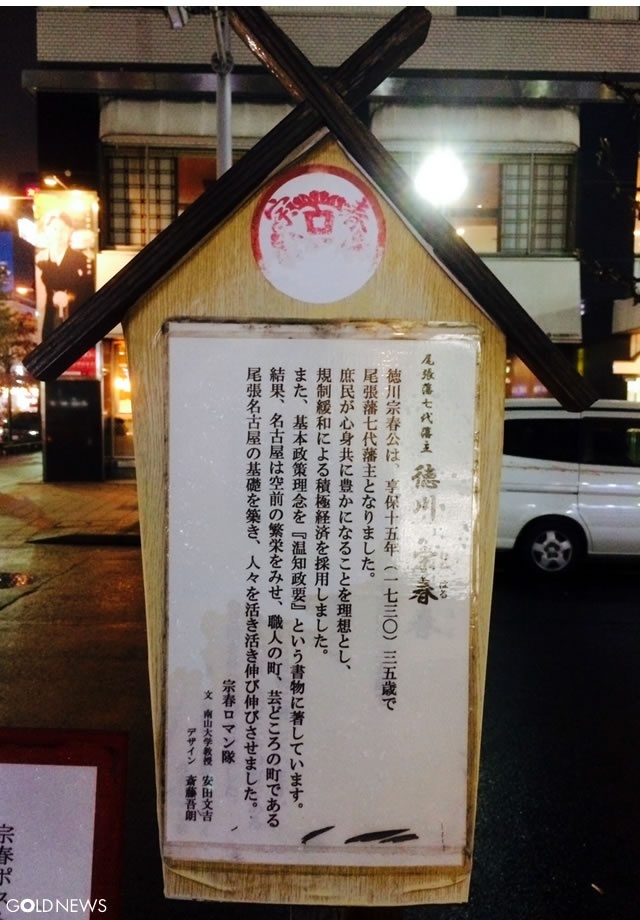 宗春
尾張藩七代藩主 徳川宗春
はる
徳川宗春公は、享保十五年（一七三〇）三五歳で
尾張藩七代藩主となりました。
庶民が心身共に豊かになることを理想とし、
規制緩和による積極経済を採用しました。
また、基本政策理念を『温知政要』という書物に著しています。
結果、名古屋は空前の繁栄をみせ、職人の町、芸どころの町である
尾張名古屋の基礎を築き、人々を活き活き伸び伸びさせました。
宗春ロマン隊
文 南山大学教授 安田文吉
デザイン 斎藤吾朗
宗春ポス
GOLDNEWS